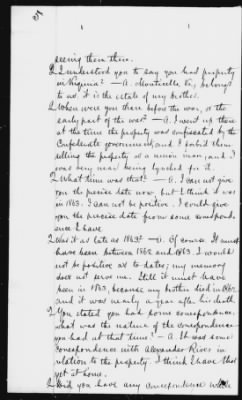 seeing them there.
Q. I understood you to say you had property
in Virginia? — A. Monticello, Va., belongs
to me. it is the estate of my brother.
Q. When were you there before the war, or the
early part of the war? — A. I went up there
at the time the property was confiscated by the
Confederate government, and I
the property a union man, and I
was very near being for it.
Q. What time was that? — A. I can not give
you the precise date now, but I think it was
in 1863. I can not be positive. I could give
you the precise date from some correspond-
ence I have.
Q. Was it as late as 1863? — A. Of course it must
have been between 1862 and 1863. I would
not be positive as to dates; my memory
does not serve me. Still it must have
been in 1863, because my brother died in 1862,
and it was nearly a year after his death.
Q. You stated you had some correspondence.
what was the nature of the correspondence
you had at that time? — A. It was some
correspondence with Alexander Rives in
relation to the property. I think I have that
yet at home.
Q. Did you have any correspondence with